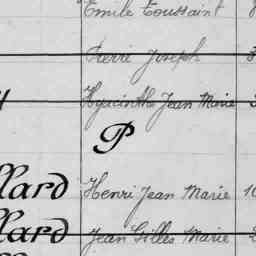 Emile Toussaint
Pierre Joseph
Hyacinthe Jean Marie
P
llard Henri Jean Marie 10
llard Jean Gilles Marie